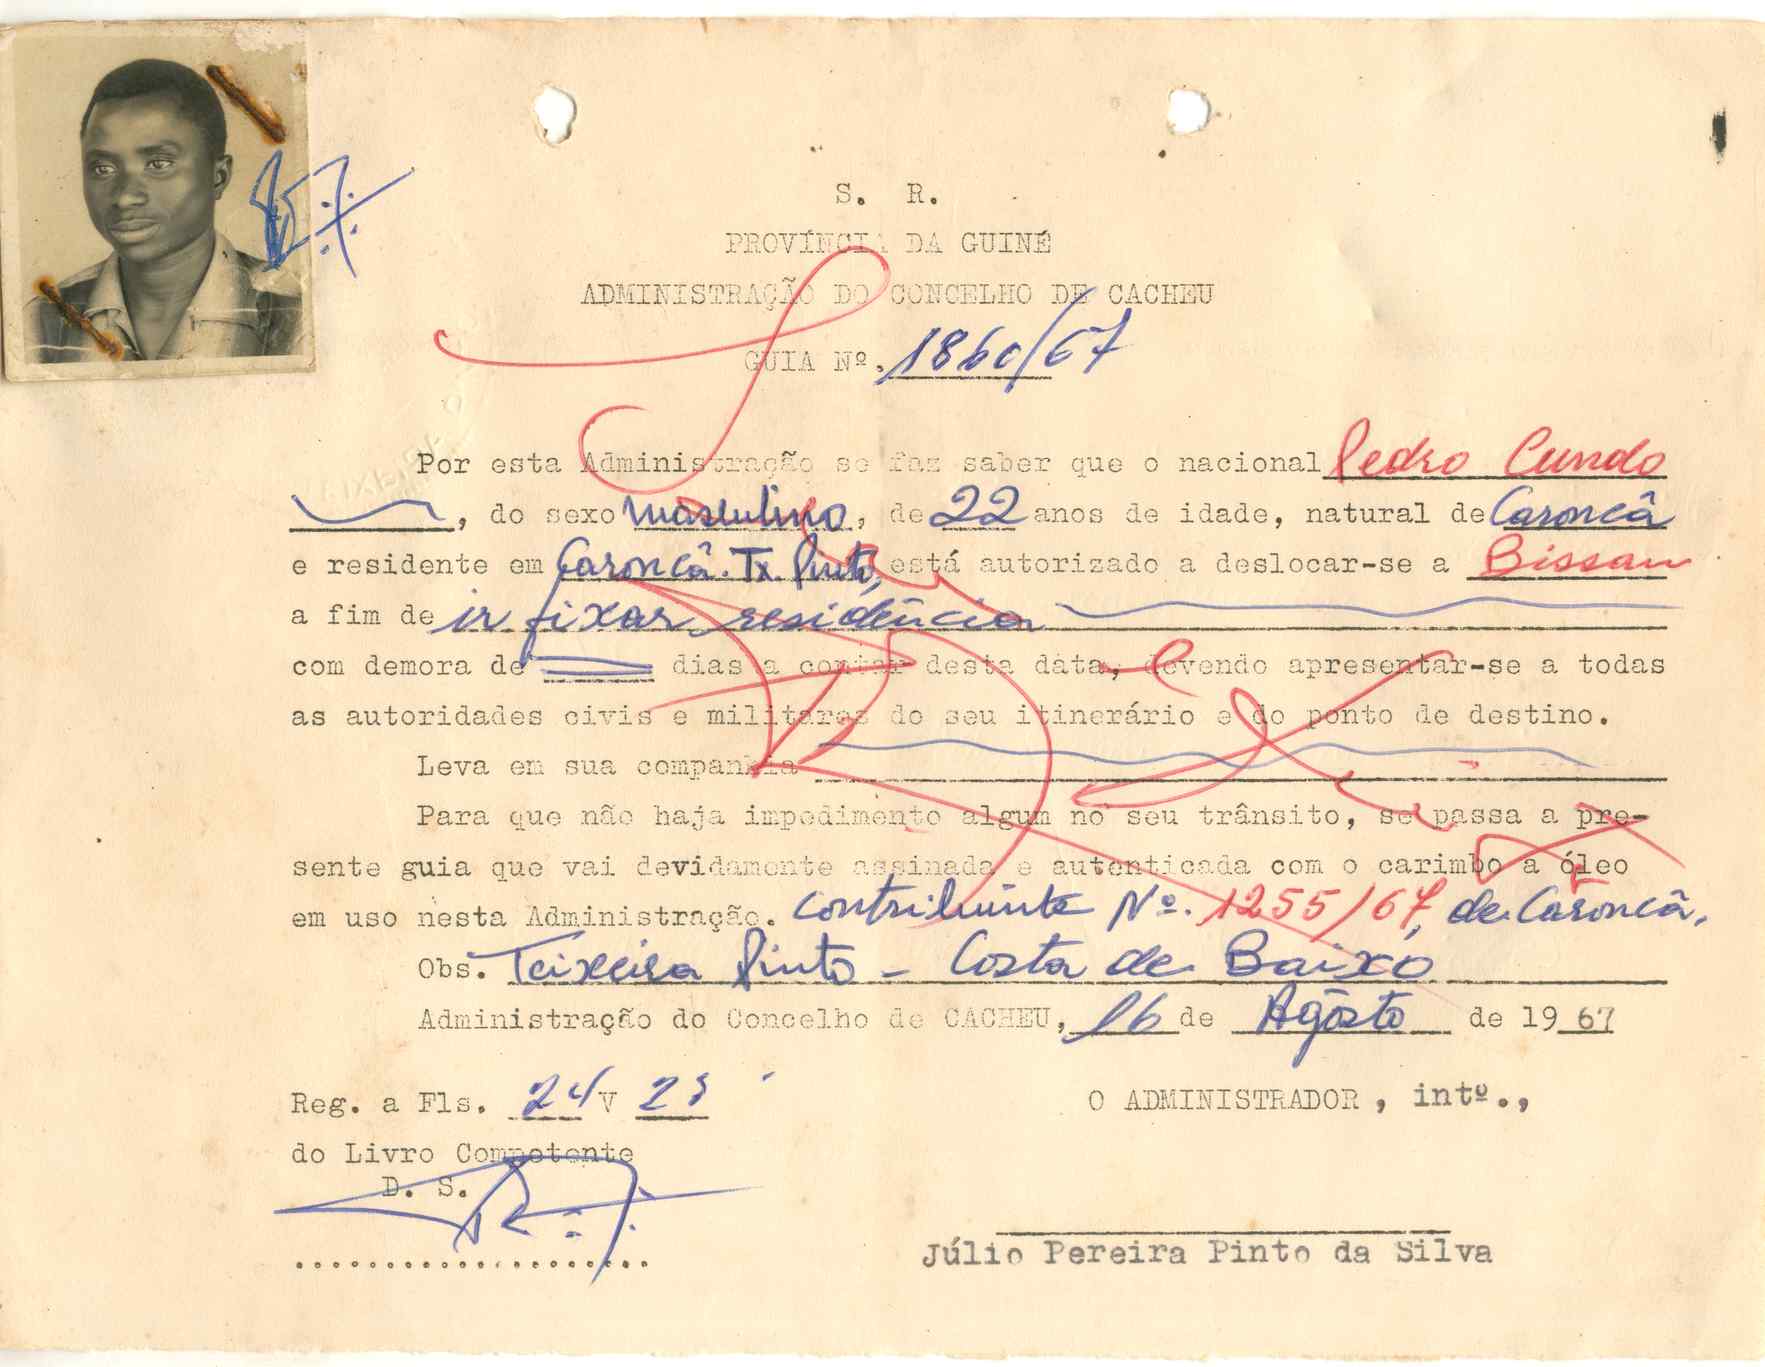 S. R.
PROVÍNCIA DA GUINÉ
ADMINISTRAÇÃO DO CONCELHO DE CACHEU
GUIA Nº. 1860/67
Por esta Administração se faz saber que o nacional Pedro Cundo
, do sexo masculino, de 22 anos de idade, natural de Caroncâ
e residente em Caroncâ. Tx. Pinto, está autorizado a deslocar-se a Bissau
a fim de ir fixar residência
com demora de dias a contar desta data, devendo apresentar-se a todas
as autoridades civis e militares do seu itinerário e do ponto de destino.
Leva em sua companhia
Para que não haja impedimento algum no seu trânsito, se passa a pre-
sente guia que vai devidamente assinada e autenticada com o carimbo a óleo
em uso nesta Administração. Contribuinte Nº. 1255/67, de Caroncâ,
Obs. Teixeira Pinto - Costa de Baixo
Administração do Concelho de CACHEU, 16 de Agôsto de 1967
Reg. a Fls. 24 V
O ADMINISTRADOR, intº.,
do Livro Competente
D. S.
Júlio Pereira Pinto da Silva